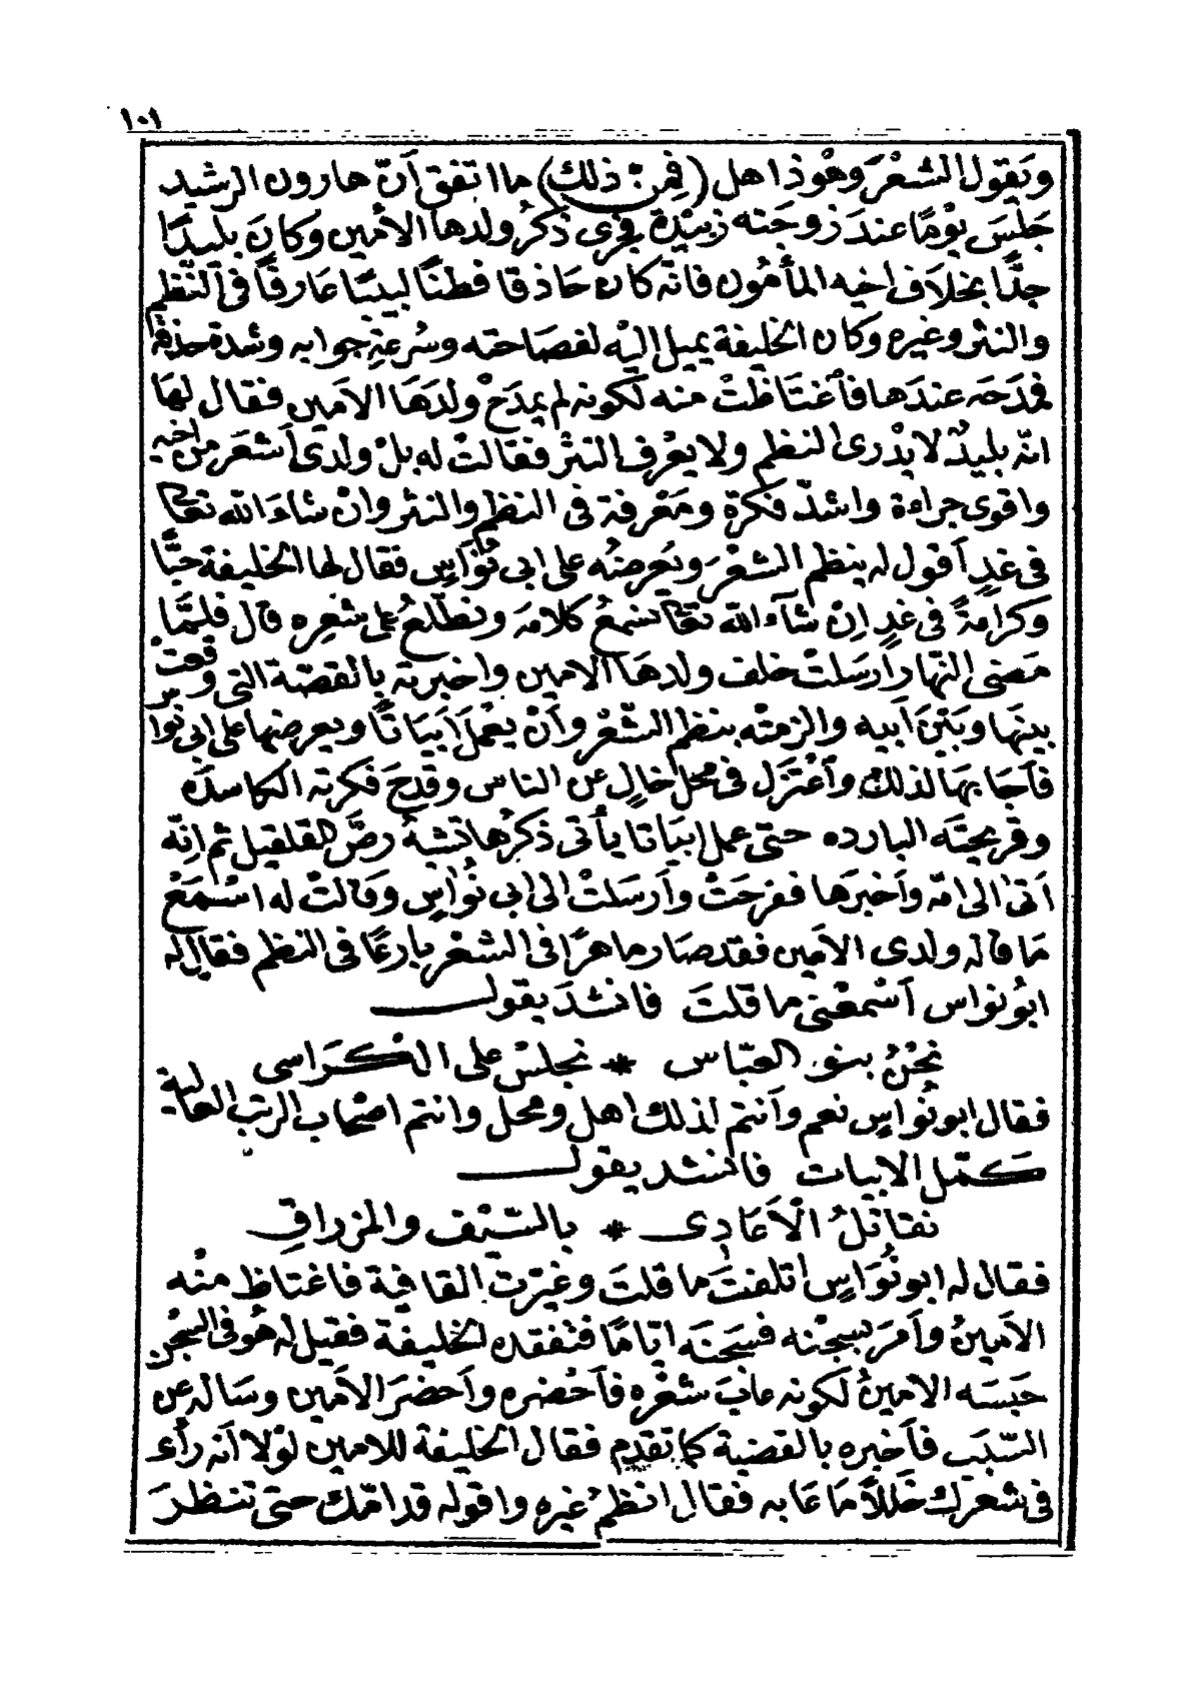 ١٠١
ويقول الشعْرَ وهُوَ ذاهل (فمن: ذلك) ما اتفق أَنّ هارون الرشيد
جَلسَ يَوْمًا عندَ زوجته زبَيْدة فجرى ذكرُ ولدها الأمين وكانَ بليدًا
جدًّا بخلاَف اخيه المأمُون فانه كان حَاذقا فطنًا لبيبًا عَارفًا فى النّظم
والنثر وغيره وكان الخليفة يميل اليْه لفصَاحته وسُرعةِ جوابه وشدة حذقه
فمدَحَه عندَها فأغتَاظتْ منه لكونه لم يمدَحْ ولدَهَا الاَمين فقال لهَا
انّه بليدٌ لا يدْرى النظم ولا يعْرف النثرْ فقالتْ له بلْ ولدى أشعَر من اخيه
واقوى جراءة واشدّ فكرة ومَعْرفة فى النظم والنثر وانْ شاءَ الله تعالى
فى غدٍ أقول له ينظم الشعْرَ ويَعْرضُه على ابى نُوَّاسٍ فقال لها الخليفة حبًّا
وكرامةً فى غدٍ اِنْ شآءَ الله تعالى نسْمعُ كلامَه ونطّلعُ على شعِره قال فلمَّا
مَضى النهار أرسَلتْ خلف ولدهَا الامين واخبرته بالقصّة التى وقعتْ
بينَها وبَيْنَ أَبيه والزمتْه بنظم الشّعْر وأنْ يعْملَ أبيَاتًا ويعرضها على ابى نوا
فأجَابهَا لذلك وأعْتزَل فى محلٍ خالٍ عن الناس وقدحَ فكرته الكاسدَه
وقريحتَه البارده حتى عمل ابيَاتا يأتى ذكرُها تشبهُ رصَّ القلقيل ثم اِنّه
أتى الى امّه وأخبرَها ففرحَتْ وأرسَلتْ الى ابى نُوَاسٍ وقالتْ له اسْمَعْ
مَا قاله ولدى الاَمين فقد صَار ماهرًا فى الشعْر بارعًا فى النظم فقال له
ابوُ نواس أسْمعْنى ما قلتَ فانشدَ يقول
نحْنُ بنو العبّاس * نجلسْ على الكَرَاسى
فقال ابو نُوَاسٍ نعم وأنتم لذلك اهل ومحل وانتم اصْحاب الرتب العالية
كمّل الابيات فانشد يقول
نقاتلُ الْأعَادِى * بالسّيْف والمزراقِ
فقال له ابو نُوَاسٍ اتلفتَ ما قلتَ وغيّرْتَ القافية فاغتاظ منْه
الاَمينُ وأمَر بسجْنه فسَجنَه ايّامًا فتفقده الخليفة فقيل له هُو فى السجْن
حَبسَه الامينُ لكونه عابَ شعْرَه فأحْضره وأحضَرَ الاَمين وسَاله عن
السّبَب فأخبره بالقضية كما تقدم فقال الخليفة للامين لوْلا أنه رأى
فى شعرك خَللاً مَا عَابه فقال انظم غيرَه واقوله قدامّك حتى تنظرَ